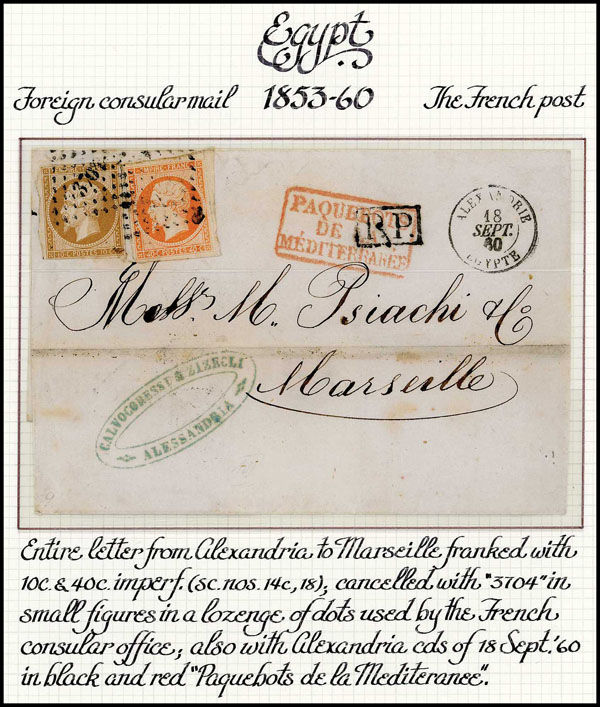 Egypt
Foreign consular mail 1853-60 The French post
10·C·POSTES·10·C
EMPIRE FRANC
40·C·POSTES·40·C
PAQUEBOTS
DE LA
MÉDITERRANÉE
P.P.
ALEXANDRIE
18
SEPT.
60
EGYPTE
Messrs M. Psiachi & Co
Marseille
CALVOCORESSI & ZIZECLI
ALESSANDRIA
Entire letter from Alexandria to Marseille franked with
10c. & 40c. imperf. (sc. nos. 14c, 18); cancelled with "3704" in
small figures in a lozenge of dots used by the French
consular office; also with Alexandria cds of 18 Sept. '60
in black and red "Paquebots de la Mediteranee".